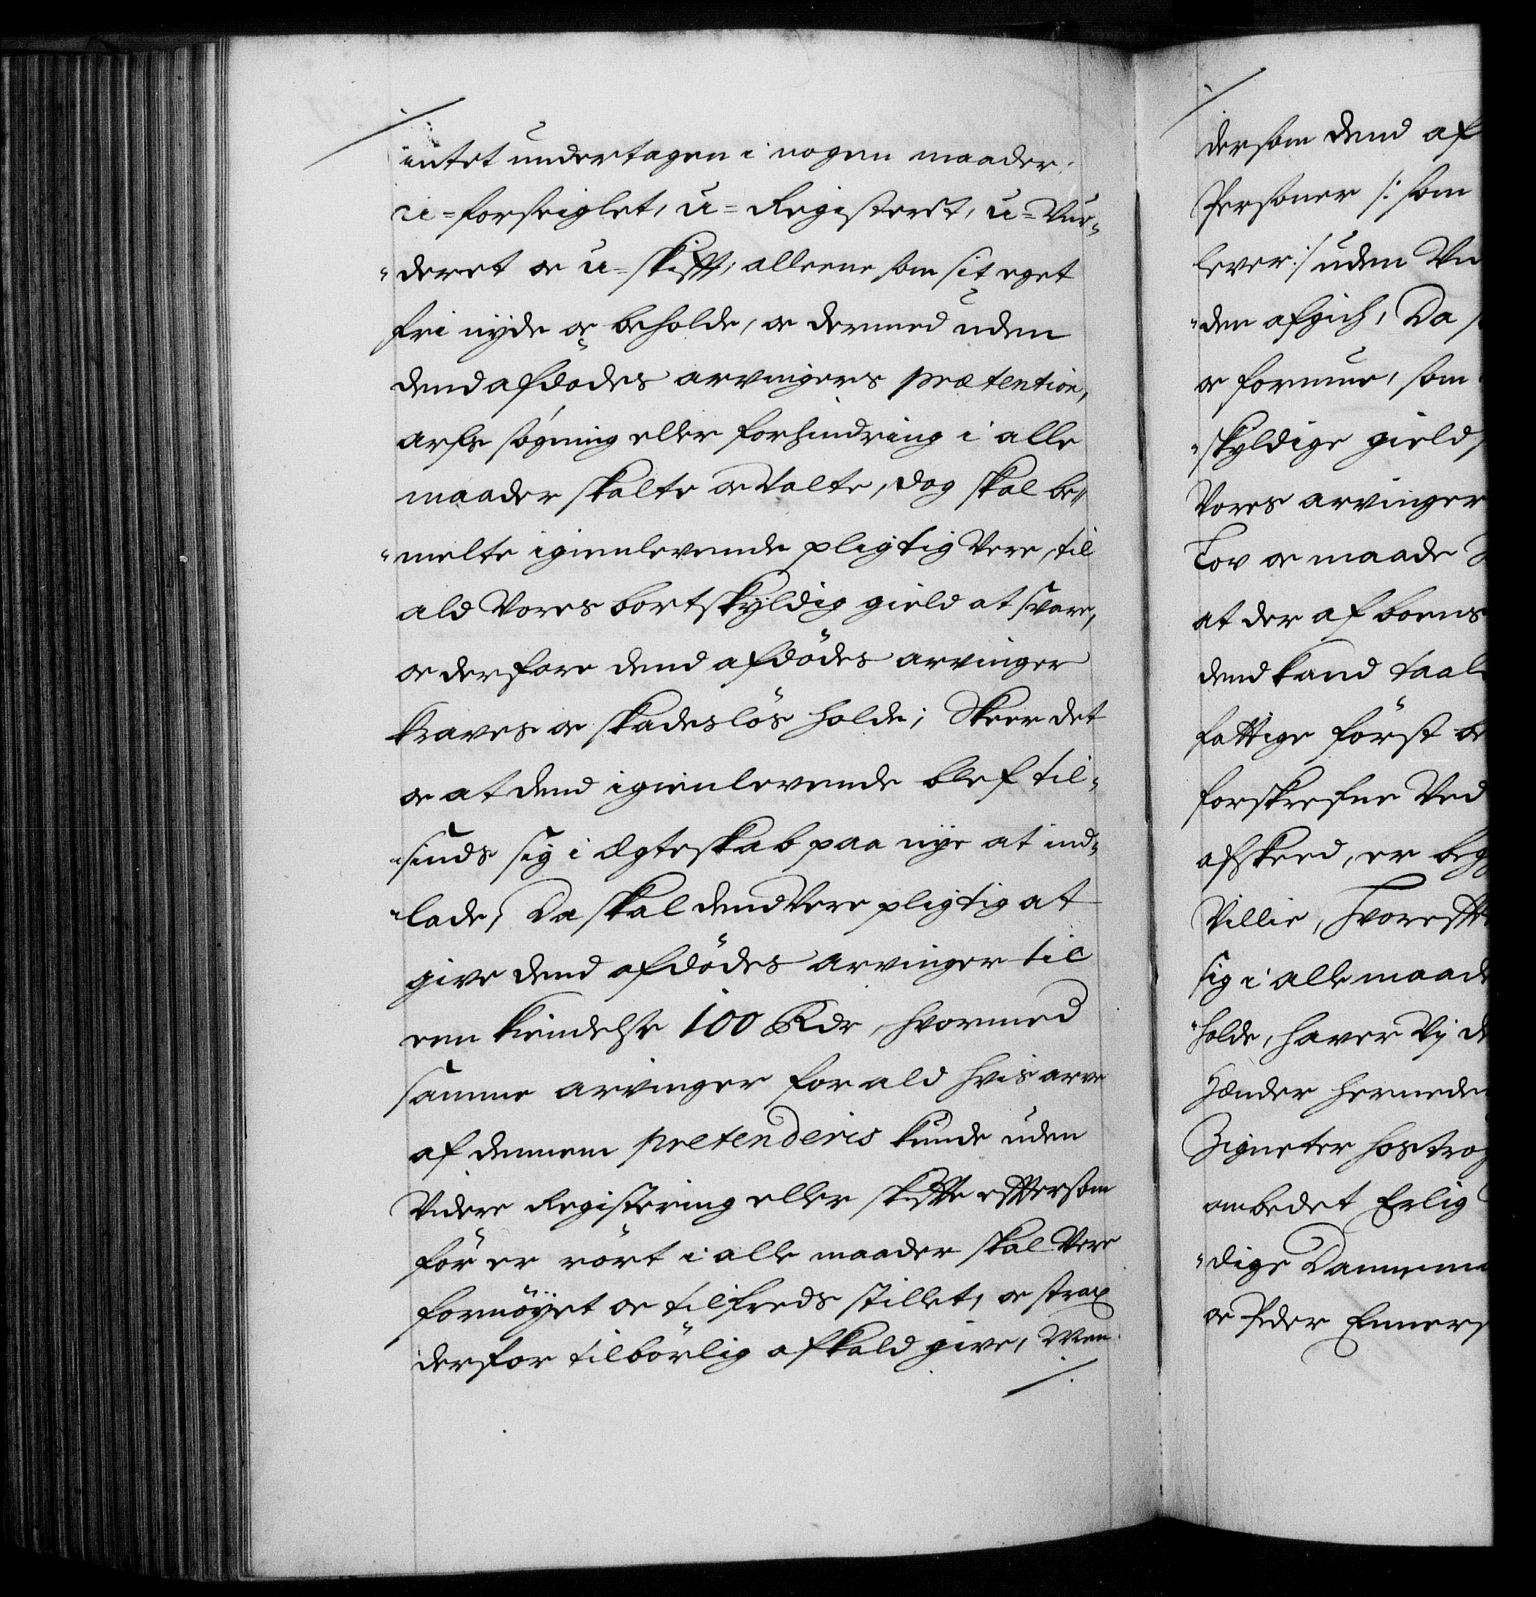 intet undertagen i nogen maader,
u=forseiglet, u=Registeret, u=Vur„
„deret oc u=skifft, alleene som sit eget
frii nyde oc beholde, oc dermed uden
dend afdødes arvingers prætention,
arfs søgning eller forhindring i alle
maader skalte oc valte, dog skal be„
„melte igienlevende pligtig Vere, til
ald Vores bortskyldig gield at svare,
oc derfore dend afdödes arvinger
kraves oc skadeslös holde; Skeer det
oc at dend igienlevende blef til„
„sinds sig i ægteskab paa nye at ind„
„lade, Da skal dend Vere pligtig at
give dend afdödes arvinger til
een kiendelse 100 Rdr, hvormed
samme arvinger for ald hvis arve
af dennem pretenderis kunde uden
Videre Registering eller skiffte efftersom
för er rört i alle maader skal Vere
fornöyet oc tilfreds stillet, oc strax
derfor tilbörlig afkald give, Men
dersom dend af
Personer /: som
lever :/ uden Vn
„den afgich, Da
oc formue, som
„skyldige gields
Vores arvinger
Lov oc maade
at der af boens
dend kand taal
fattige först oc
forskrefne Ved
afskeed, er beg
Villie, hvorefft
sig i alle maad
holde, haver Vj d
Hænder herneden
Zigneter hostrog
ombedet Erlig
„dige Dannem
oc Peder Emmers